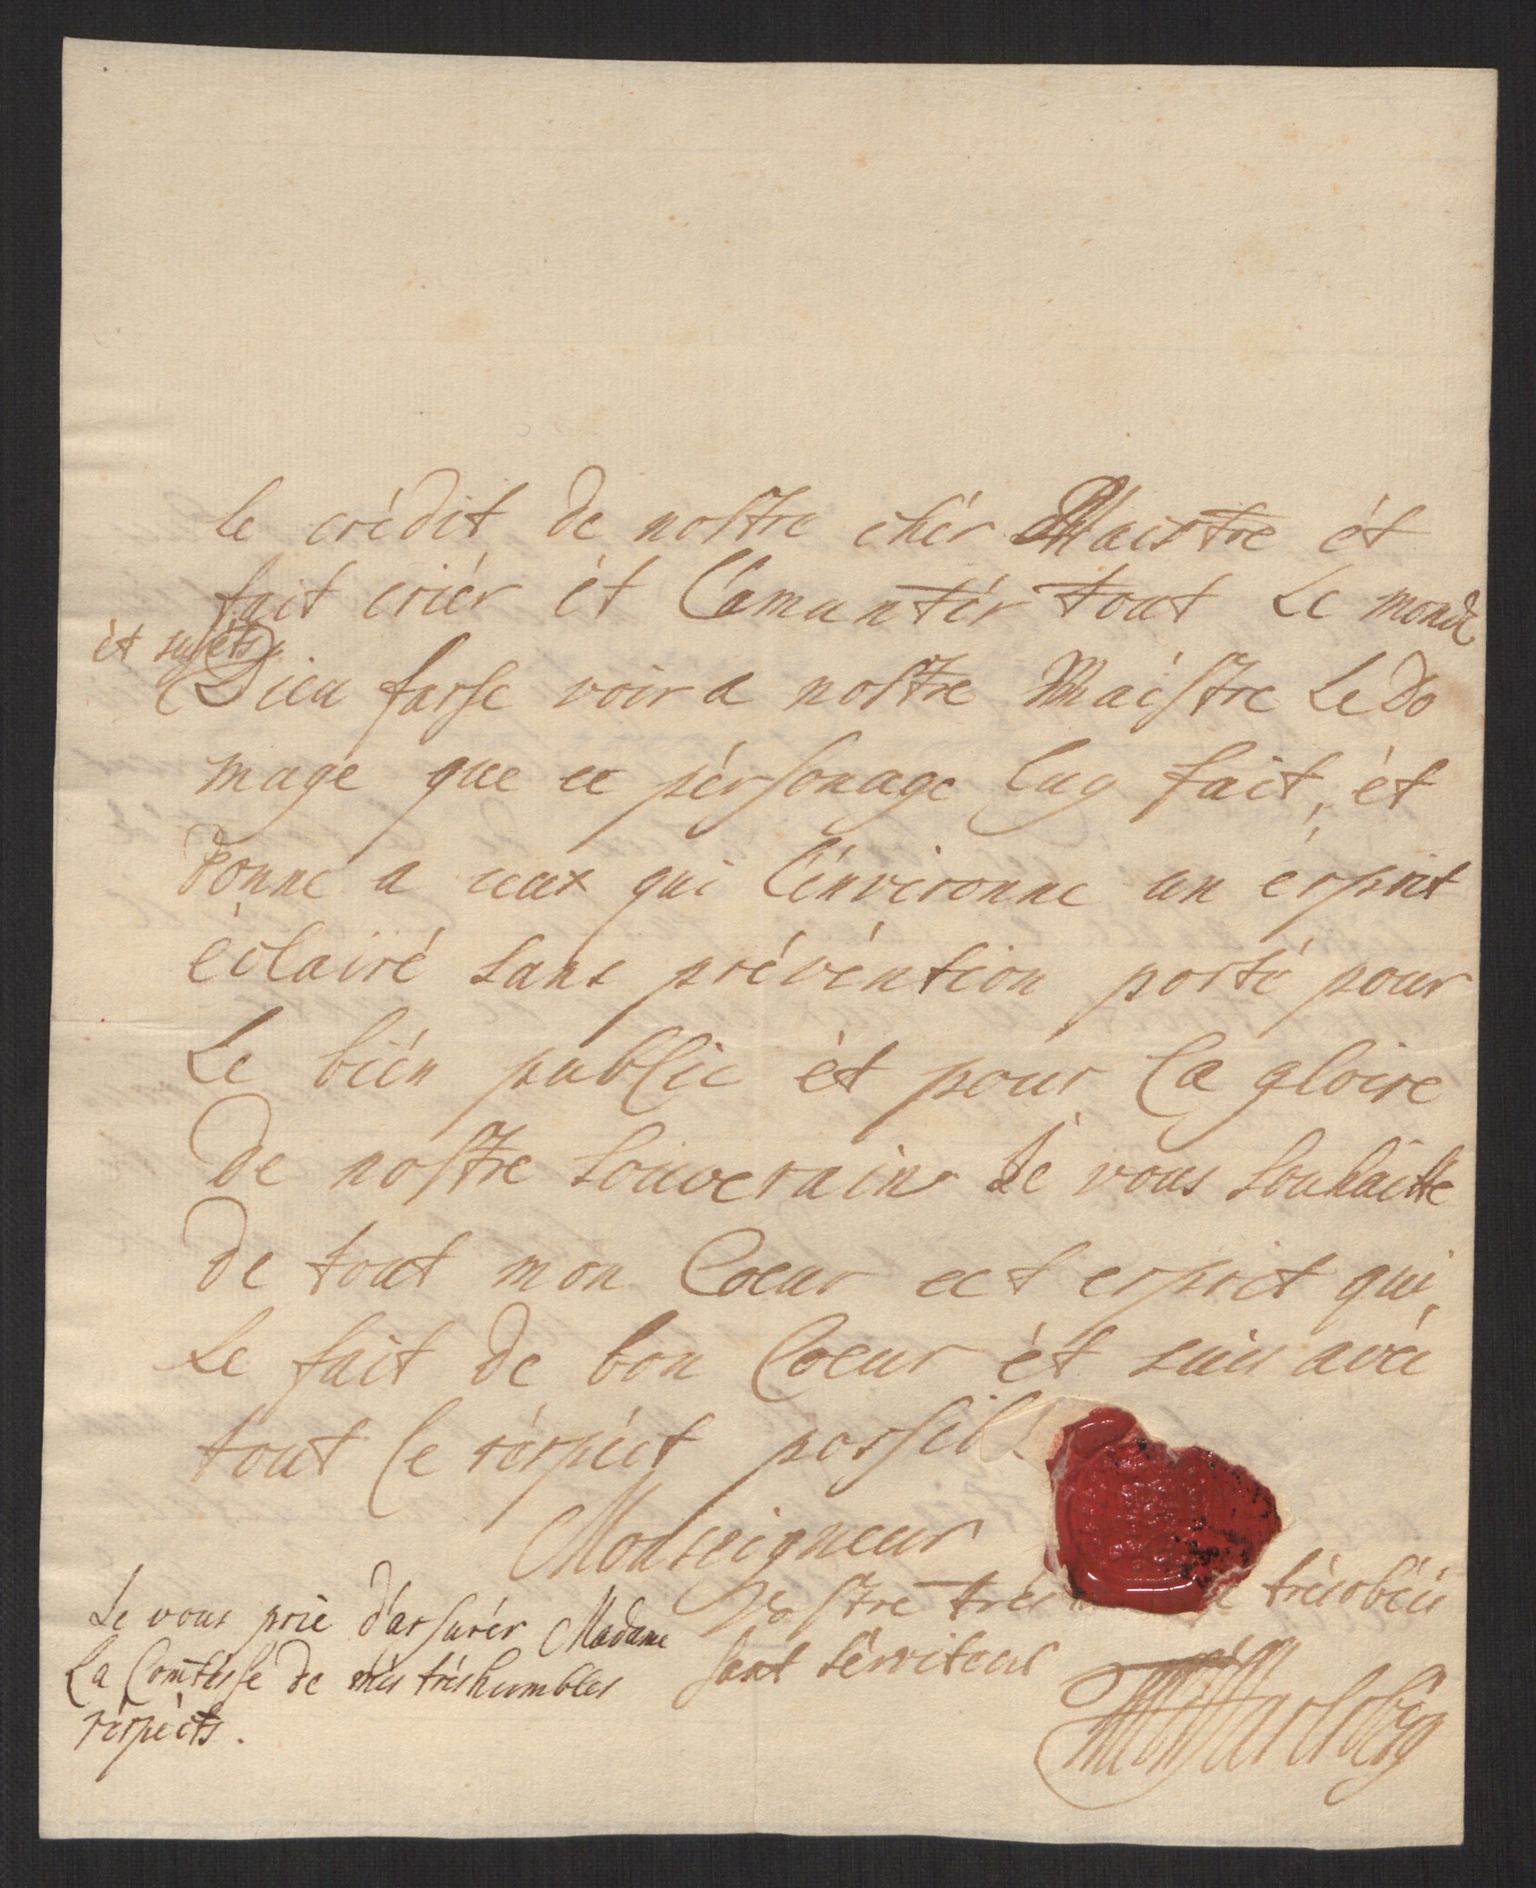 le crédit de nostre chér Maistre ét
fait criér ét Lamantér tout Le monde
ét sujéts
Dieu fasse voir a nostre Maistre Le do
mage que ce pérsonage luy fait, ét
donne a ceux qui l'énvironne un ésprit
éclairé sans prévéntion porté pour
Le bién public ét pour La gloire
de nostre souverain Je vous souhaitte
de tout mon Coeur cet esprit qui
Le fait de bon Coeur ét suis avéc
tout le réspéct possibl
Monseigneur
Vostre trés trésobéis
sant sérviteur
Je vous prie d'assurér Madame
La Comtésse de més tréshumbles
réspécts.